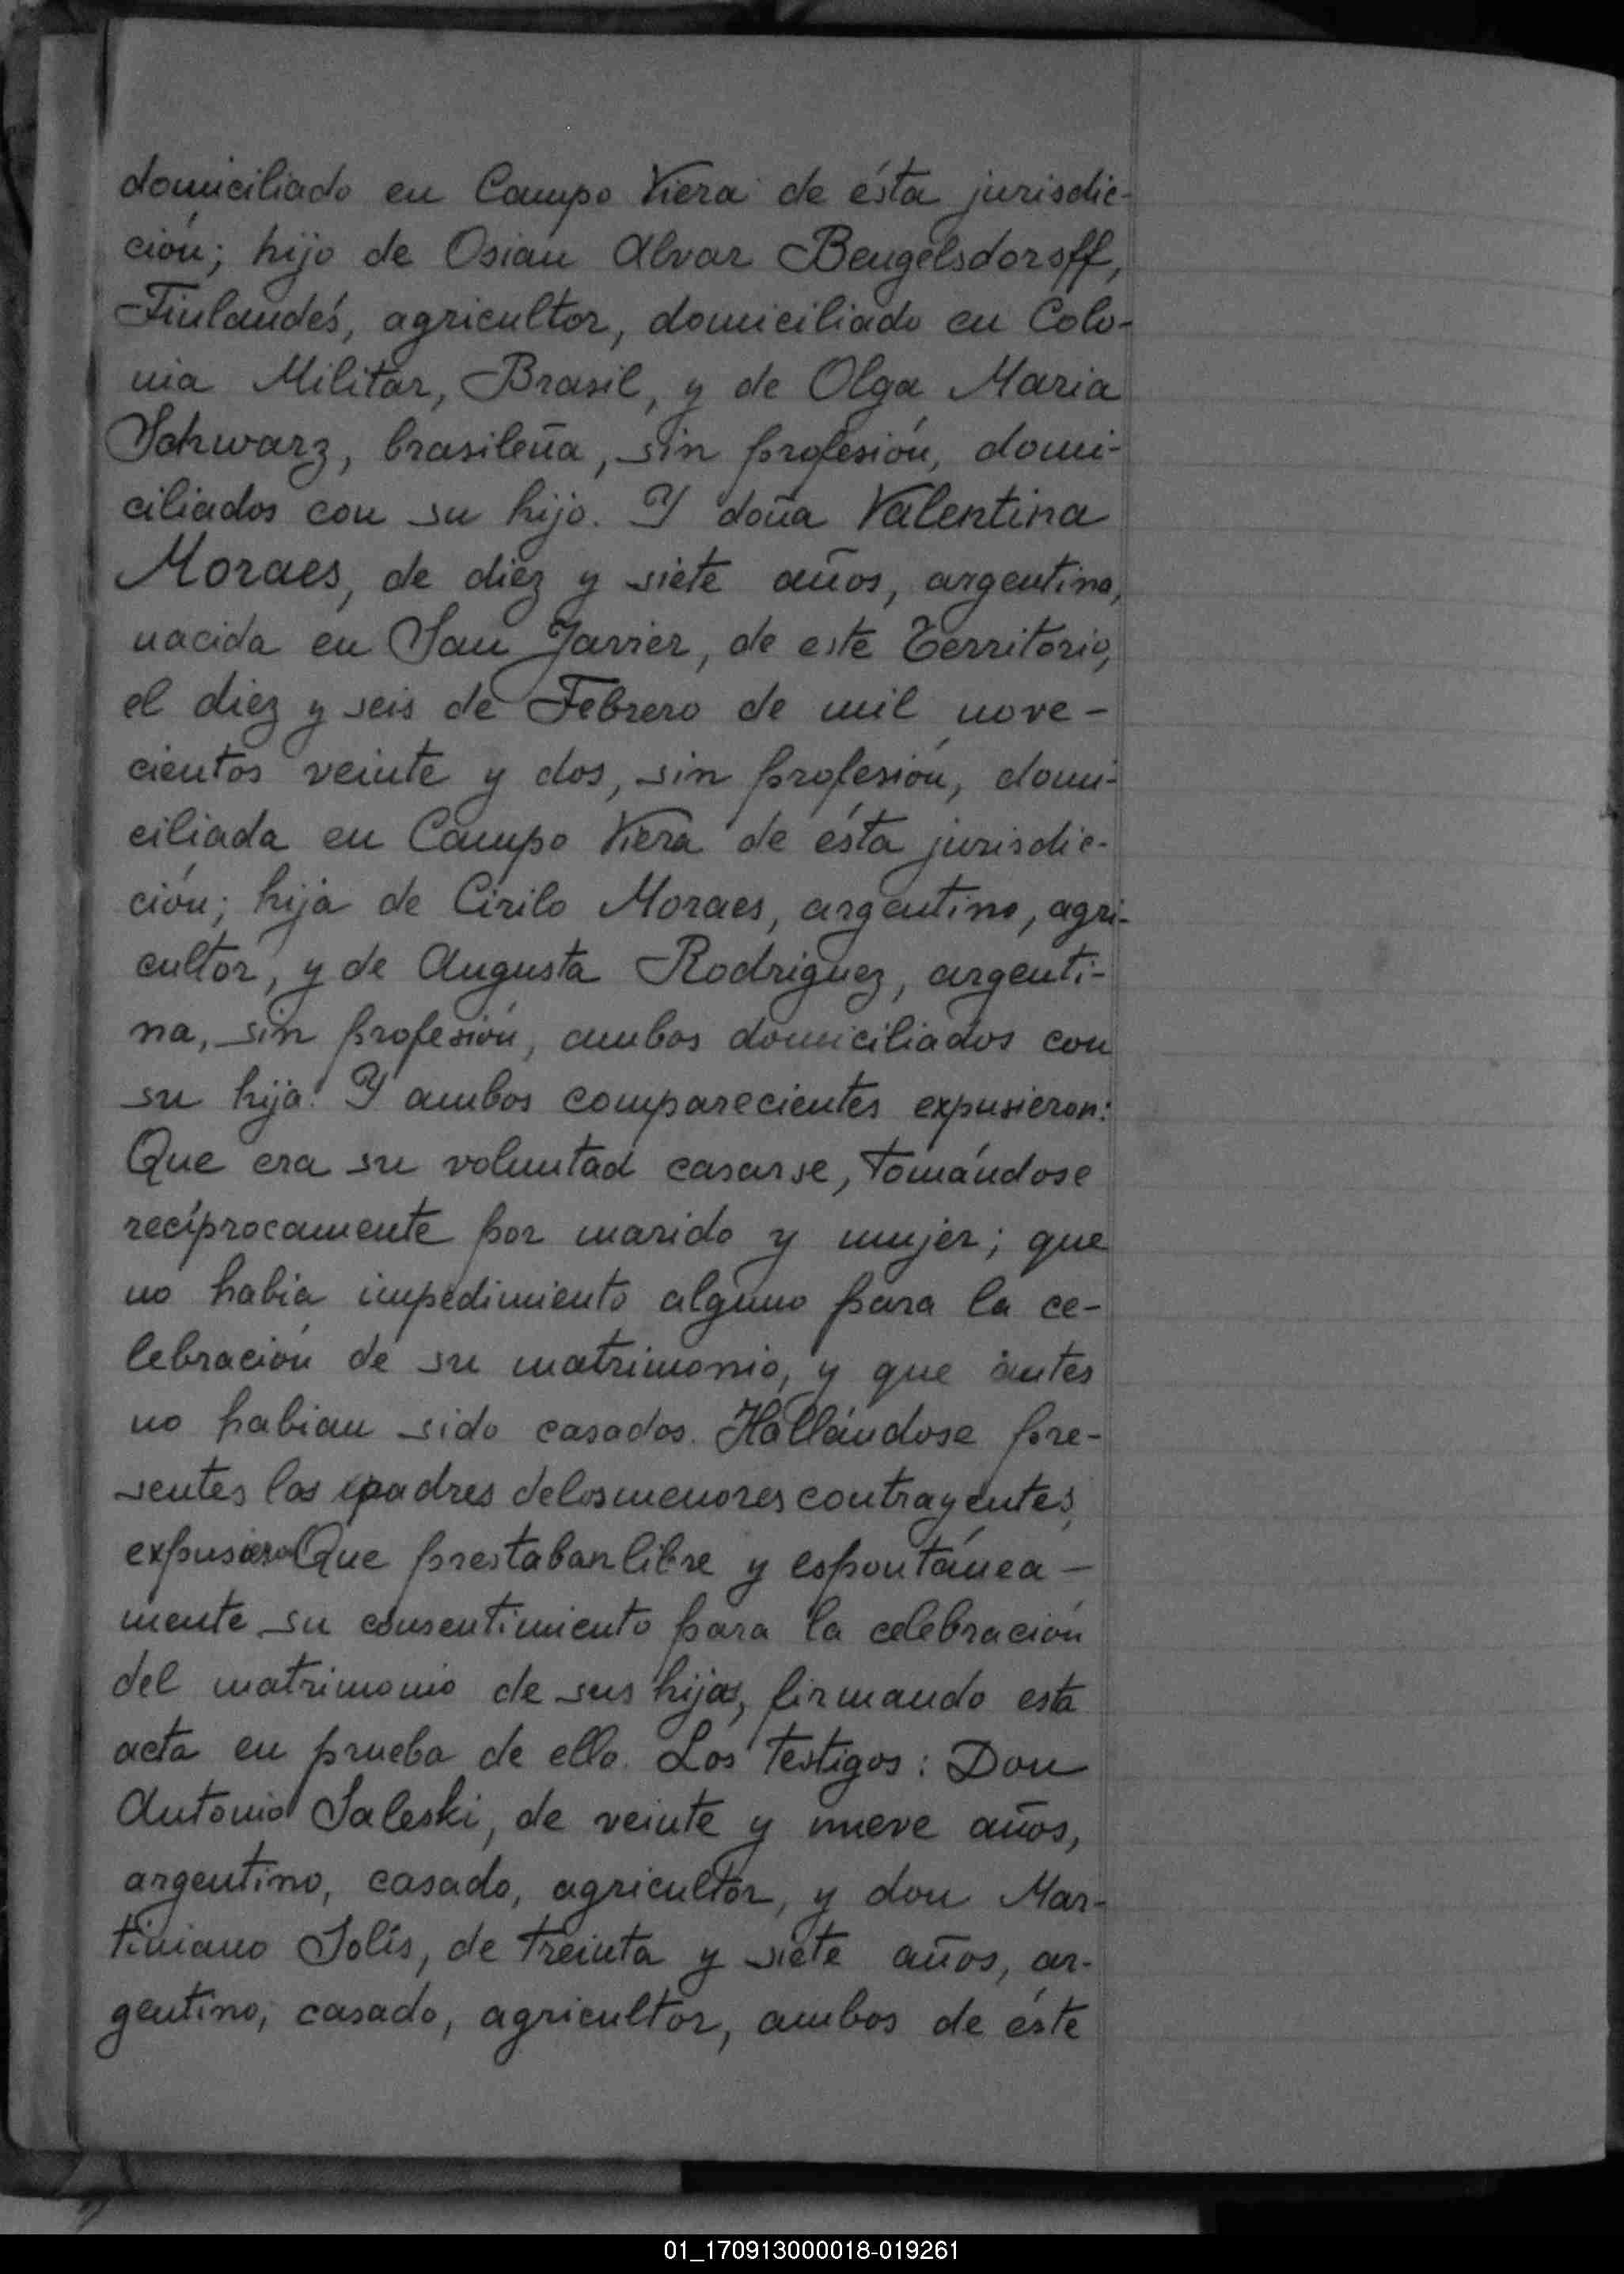 domiciliado en Campo Viera de ésta jurisdic-
ción; hijo de Osian Alvar Beugelsdorff,
Finlandés, agricultor, domiciliado en Colo-
nia Militar, Brasil, y de Olga Maria
Schwarz, brasileña, sin profesión, domi-
ciliados con su hijo. Y doña Valentina
Moraes, de diez y siete años, argentina,
nacida en San Javier, de este Territorio,
el diez y seis de Febrero de mil nove-
cientos veinte y dos, sin profesión, domi-
ciliada en Campo Viera de ésta jurisdic-
ción; hija de Cirilo Moraes, argentino, agri-
cultor, y de Augusta Rodriguez, argenti-
na, sin profesión, ambos domiciliados con
su hija. Y ambos comparecientes expusieron:
Que era su voluntad casarse, tomándose
recíprocamente por marido y mujer; que
no habia impedimiento alguno para la ce-
lebración de su matrimonio, y que ántes
no habian sido casados. Hallándose pre-
sentes los padres de los menores contrayentes,
expusieron Que prestaban libre y espontánea-
mente su consentimiento para la celebración
del matrimonio de sus hijos, firmando esta
acta en prueba de ello. Los testigos: Don
Antonio Saleski, de veinte y nueve años,
argentino, casado, agricultor, y don Mar-
tiniano Solís, de treinta y siete años, ar-
gentino, casado, agricultor, ambos de éste
01_170913000018-019261